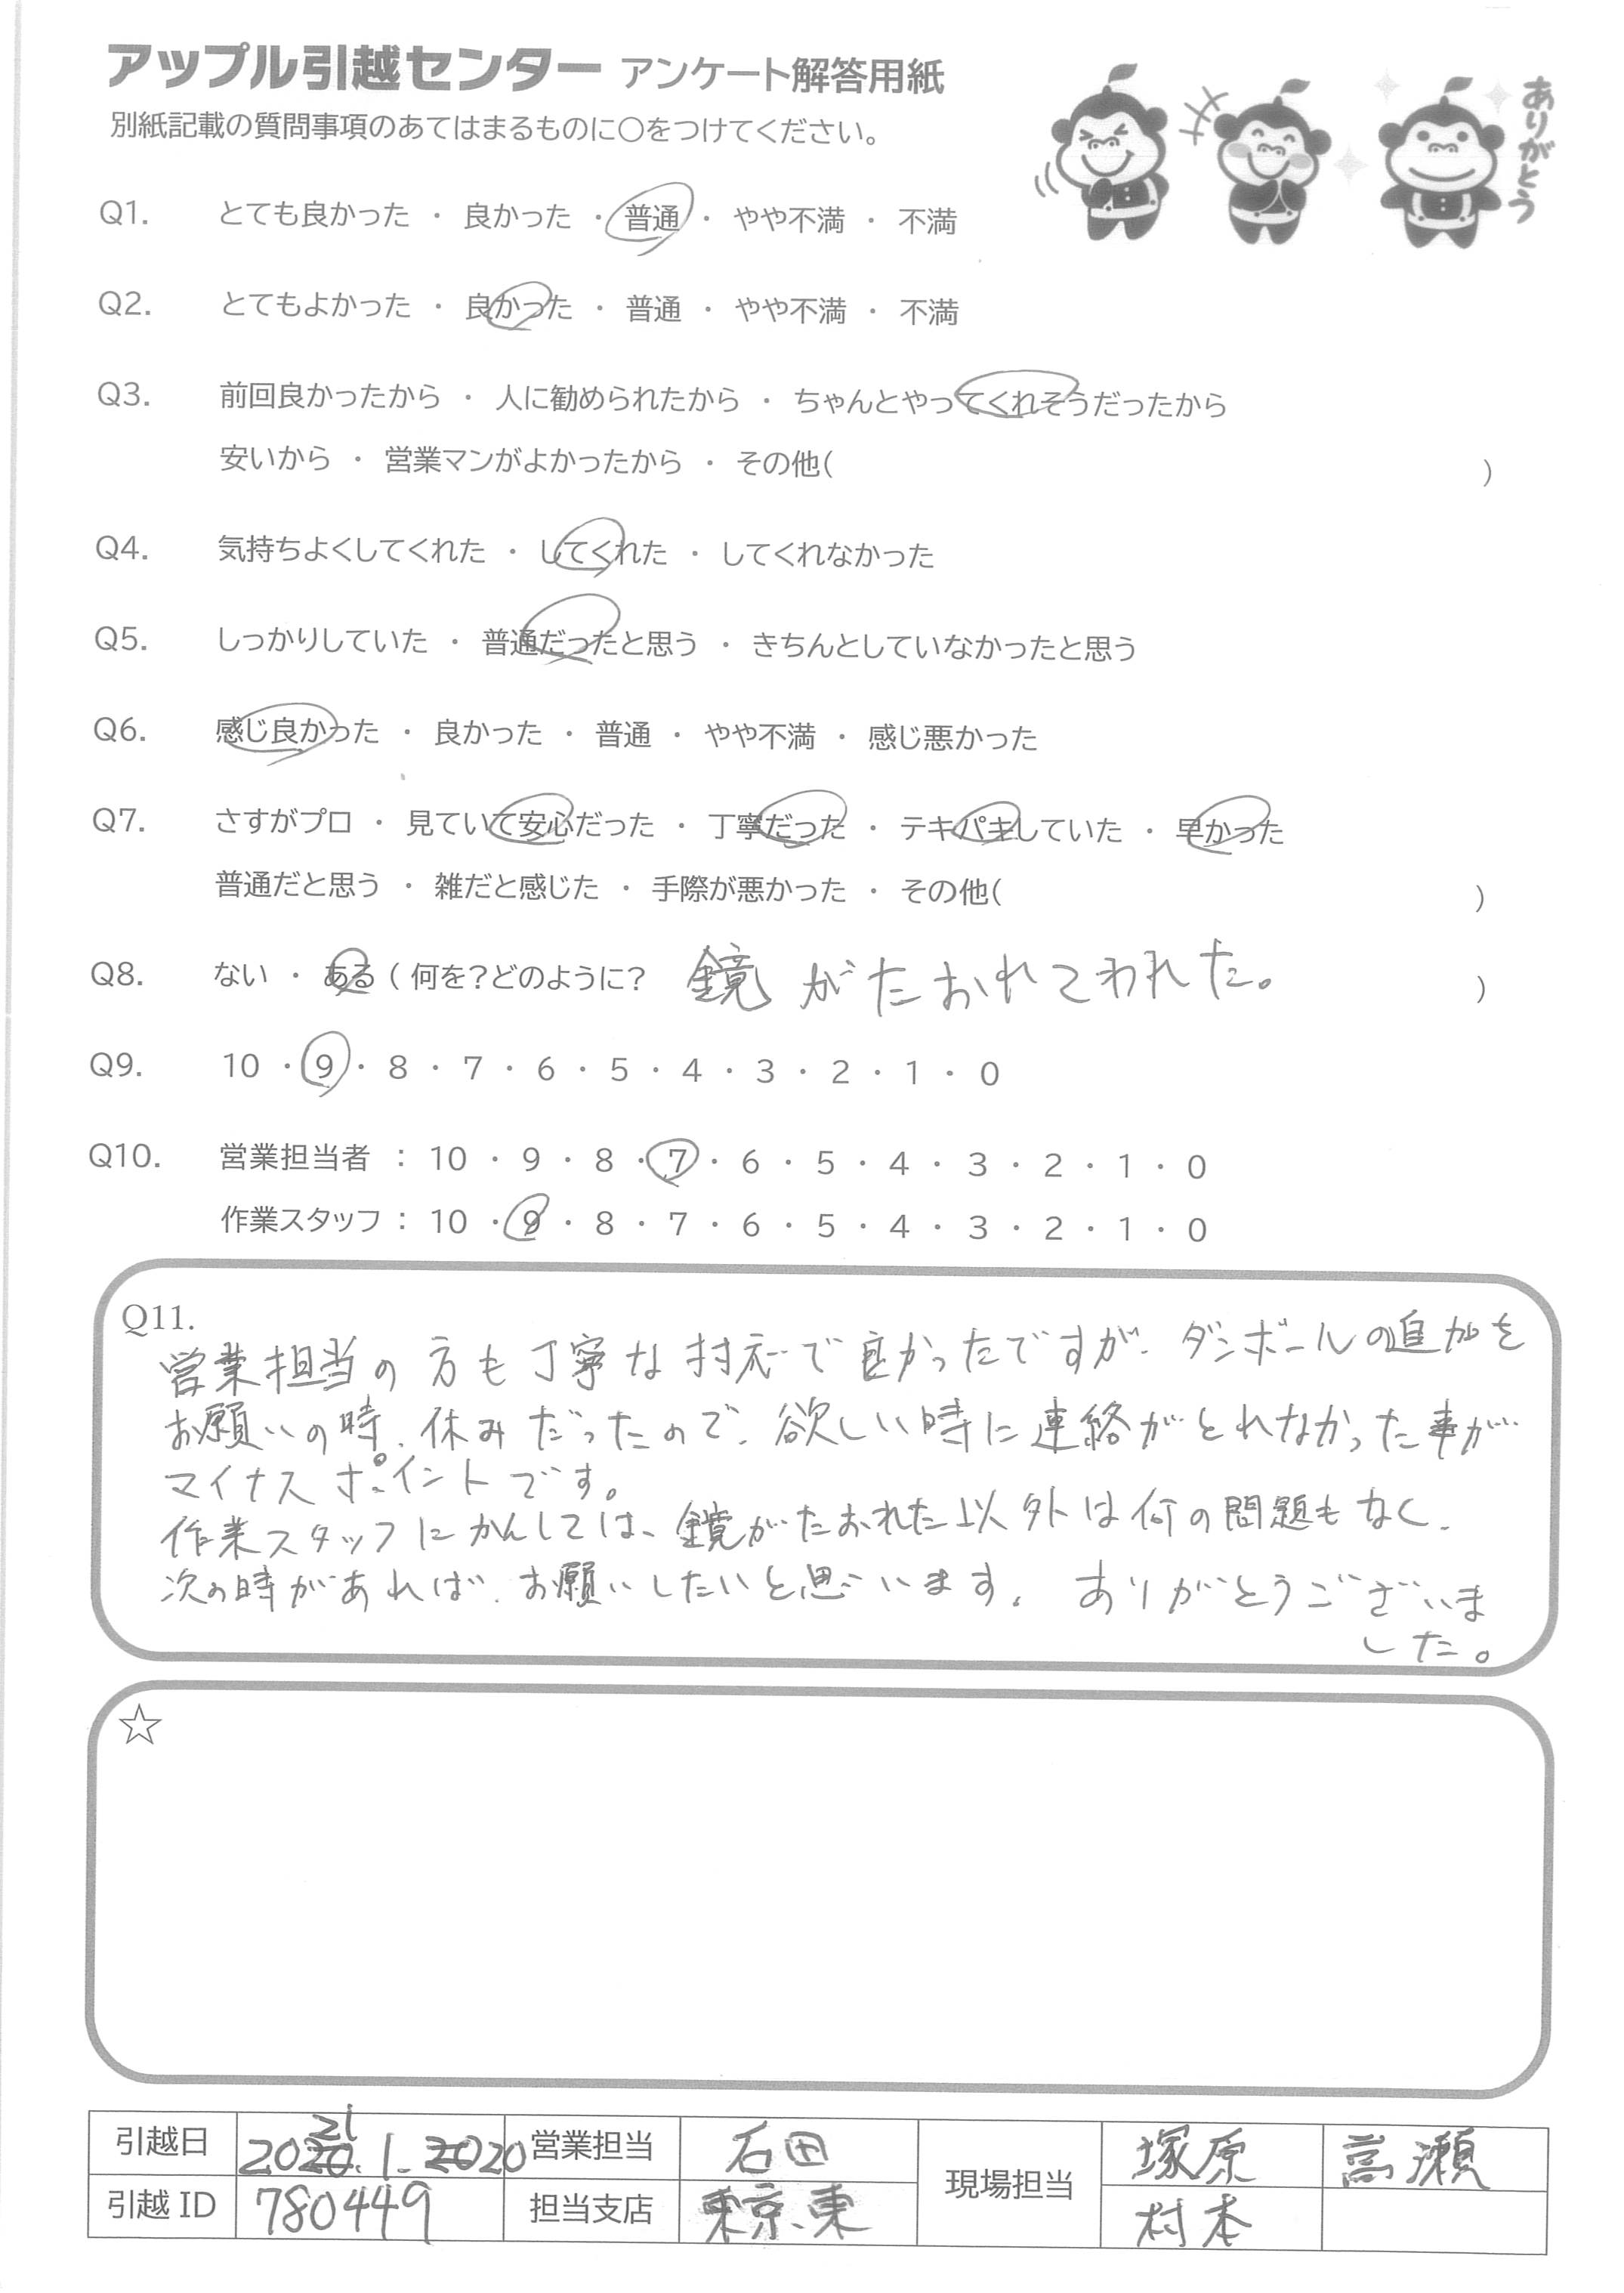 アップル引越センター アンケート解答用紙
別紙記載の質問事項のあてはまるものに○をつけてください。
ありがとう
Q1. とても良かった ・ 良かった ・ 普通 ・ やや不満 ・ 不満
Q2. とてもよかった ・ 良かった ・ 普通 ・ やや不満 ・ 不満
Q3. 前回良かったから ・ 人に勧められたから ・ ちゃんとやってくれそうだったから
安いから ・ 営業マンがよかったから ・ その他( )
Q4. 気持ちよくしてくれた ・ してくれた ・ してくれなかった
Q5. しっかりしていた ・ 普通だったと思う ・ きちんとしていなかったと思う
Q6. 感じ良かった ・ 良かった ・ 普通 ・ やや不満 ・ 感じ悪かった
Q7. さすがプロ ・ 見ていて安心だった ・ 丁寧だった ・ テキパキしていた ・ 早かった
普通だと思う ・ 雑だと感じた ・ 手際が悪かった ・ その他( )
Q8. ない ・ ある ( 何を?どのように? 鏡がたおれてわれた。 )
Q9. 10 ・ 9 ・ 8 ・ 7 ・ 6 ・ 5 ・ 4 ・ 3 ・ 2 ・ 1 ・ 0
Q10. 営業担当者 : 10 ・ 9 ・ 8 ・ 7 ・ 6 ・ 5 ・ 4 ・ 3 ・ 2 ・ 1 ・ 0
作業スタッフ : 10 ・ 9 ・ 8 ・ 7 ・ 6 ・ 5 ・ 4 ・ 3 ・ 2 ・ 1 ・ 0
Q11.
営業担当の方も丁寧な対応で良かったですが、ダンボールの追加を
お願いの時、休みだったので、欲しい時に連絡がとれなかった事が
マイナスポイントです。
作業スタッフにかんしては、鏡がたおれた以外は何の問題もなく、
次の時があれば、お願いしたいと思います。 ありがとうございま
した。
☆
引越日 21 2020.1.2020 営業担当 石田 現場担当 塚原 高瀬
引越 ID 780449 担当支店 東京、東 村本